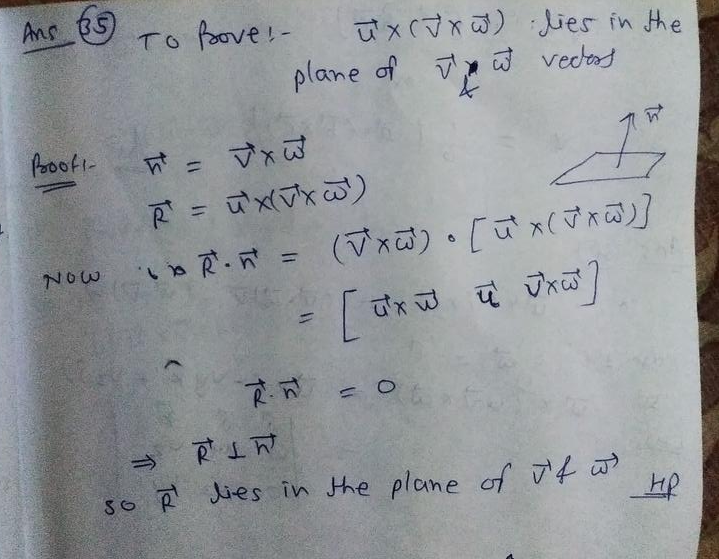 Ans (35) To Prove:- u⃗ × (v⃗ × w⃗) lies in the
plane of v⃗ & w⃗ vectors
n⃗
Proof:- n⃗ = v⃗ × w⃗
R⃗ = u⃗ × (v⃗ × w⃗)
NOW R⃗ · n⃗ = (v⃗ × w⃗) · [u⃗ × (v⃗ × w⃗)]
= [u⃗ × w⃗ u⃗ v⃗ × w⃗]
R⃗ · n⃗ = 0
⇒ R⃗ ⊥ n⃗
so R⃗ lies in the plane of v⃗ & w⃗ HP